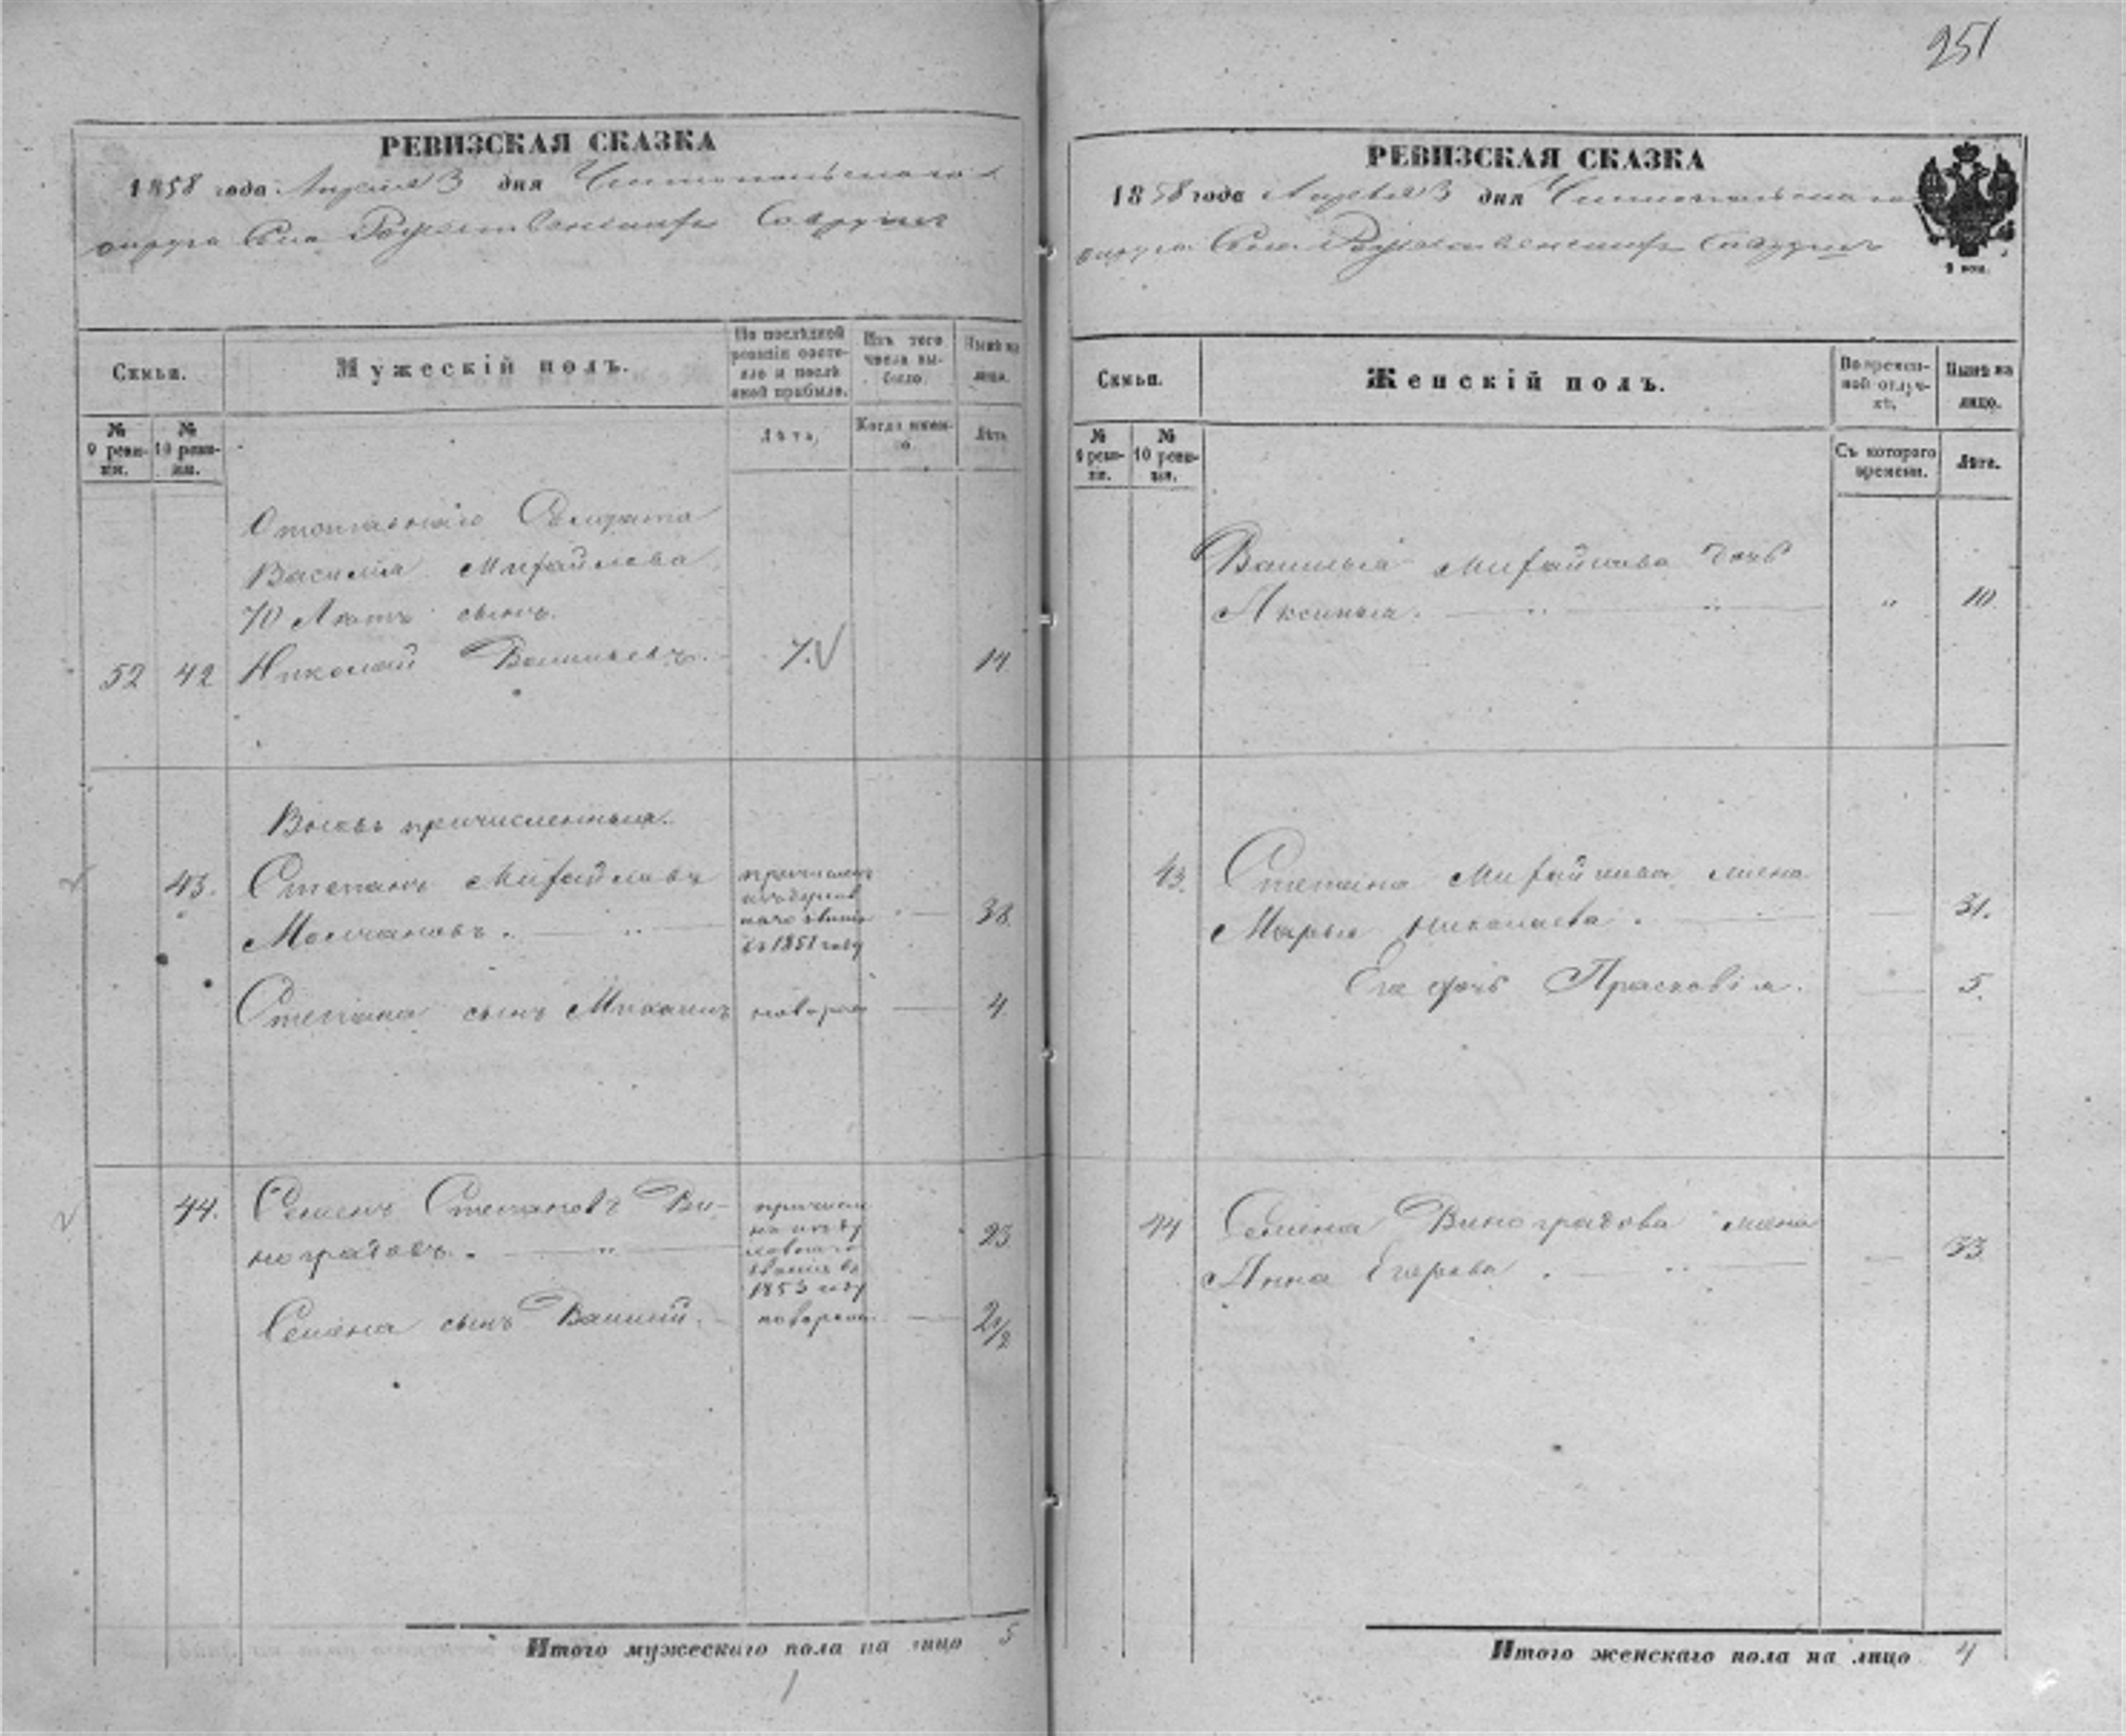 251
РЕВИЗСКАЯ СКАЗКА
1858 года Апреля 3 дня Чистопольскаго
округа Села Рождественскаго
Семьи.
Мужескій полъ.
По послѣдней ревизіи состояло и послѣ оной прибыло.
Изъ того числа выбыло.
Нынѣ на лицо.
№ 9 ревизіи.
№ 10 ревизіи.
Лѣта,
Когда именно.
Лѣта.
Василія Михайлова
70 Лѣтъ сынъ.
52 42 Николай Васильевъ. 7. 14.
Вновь причисленныя.
43. Степанъ Михайловъ
Молчановъ. 38.
въ 1851 году
Степана сынъ Михаилъ 4.
44. Семенъ Степановъ Ви-
ноградовъ. 23.
1853 году
Семёна сынъ Василій. 2/2
Итого мужескаго пола на лицо 5
РЕВИЗСКАЯ СКАЗКА
1858 года Апреля 3 дня Чистопольскаго
округа Села Рождественскаго
Семьи.
Женскій полъ.
Во временной отлучкѣ,
Нынѣ на лицо.
№ 9 ревизіи.
№ 10 ревизіи.
Съ котораго времени.
Лѣта.
Василья Михайлова дочь
Аксинья. " 10.
43. Степана Михайлова жена
Марья Николаева. 31.
Его дочь Прасковія. 5.
44 Семёна Виноградова жена
Анна Егорова. 33.
Итого женскаго пола на лицо 4